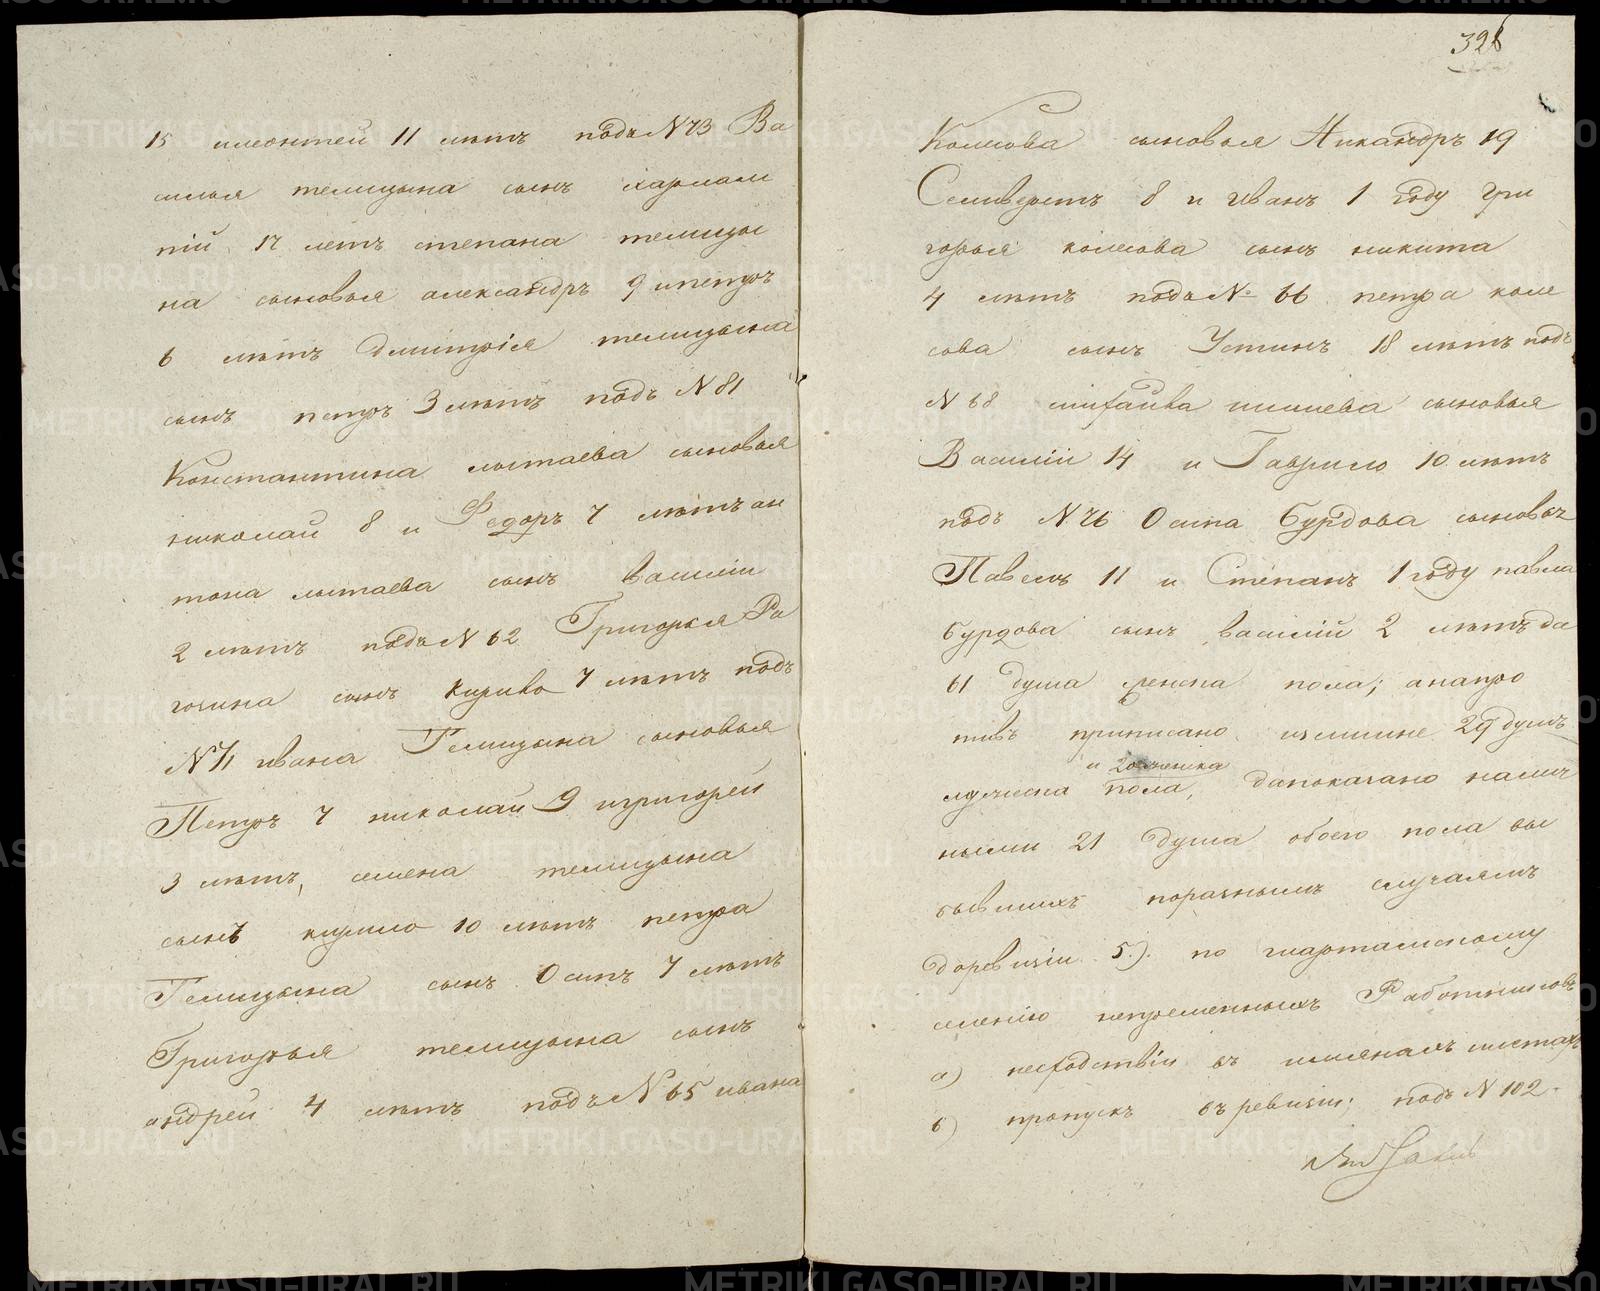 15 илеонтей 11 лѣтъ подъ N73 Ва
силья телицына сынъ харлам
пій 17 летъ степана телицы
на сыновья александръ 9 ипетръ
6 лѣтъ Дмитрія телицына
сынъ петръ 3 лѣтъ подъ N 81
Константина лытаева сыновья
николай 8 и Федоръ 7 лѣтъ ан
тона лытаева сынъ Василіи
2 лѣтъ подъ N 62 Григорья Ра
гозина сынъ Кирило 7 лѣтъ подъ
N 71 ивана Телицына сыновья
Петръ 7 николай 9 игригореи
3 лѣтъ, семена телицына
сынъ кирило 10 лѣтъ петра
Телицына сынъ Осипъ 7 лѣтъ
Григорья телицына сынъ
андреи 4 лѣтъ подъ N 65 ивана
328
Колесова сыновья Никандръ 19
Селиверстъ 8 и Иванъ 1 году Гри
горья колесова сынъ никита
4 лѣтъ подъ N 66 петра коле
сова сынъ Устинъ 18 лѣтъ подъ
N 68 михаила сыновья
Василіи 14 и Гаврило 10 лѣтъ
подъ N 76 Осипа Бурдова сыновья
Павелъ 11 и Степанъ 1 году павла
бурдова сынъ василій 2 лѣтъ да
61 душа женска пола; анапро
тивъ приписано излишне 29 душъ
и 20 женска
мужеска пола, дапоказано налич
ными 21 душа обоего пола вы
бывшихъ поразнымъ случаямъ
доревизіи 5.) по шарташскому
селенію непременныхъ Работниковъ
а) несходствіи въ имянахъ илетахъ
б) пропускъ въ ревизіи; подъ N 102.